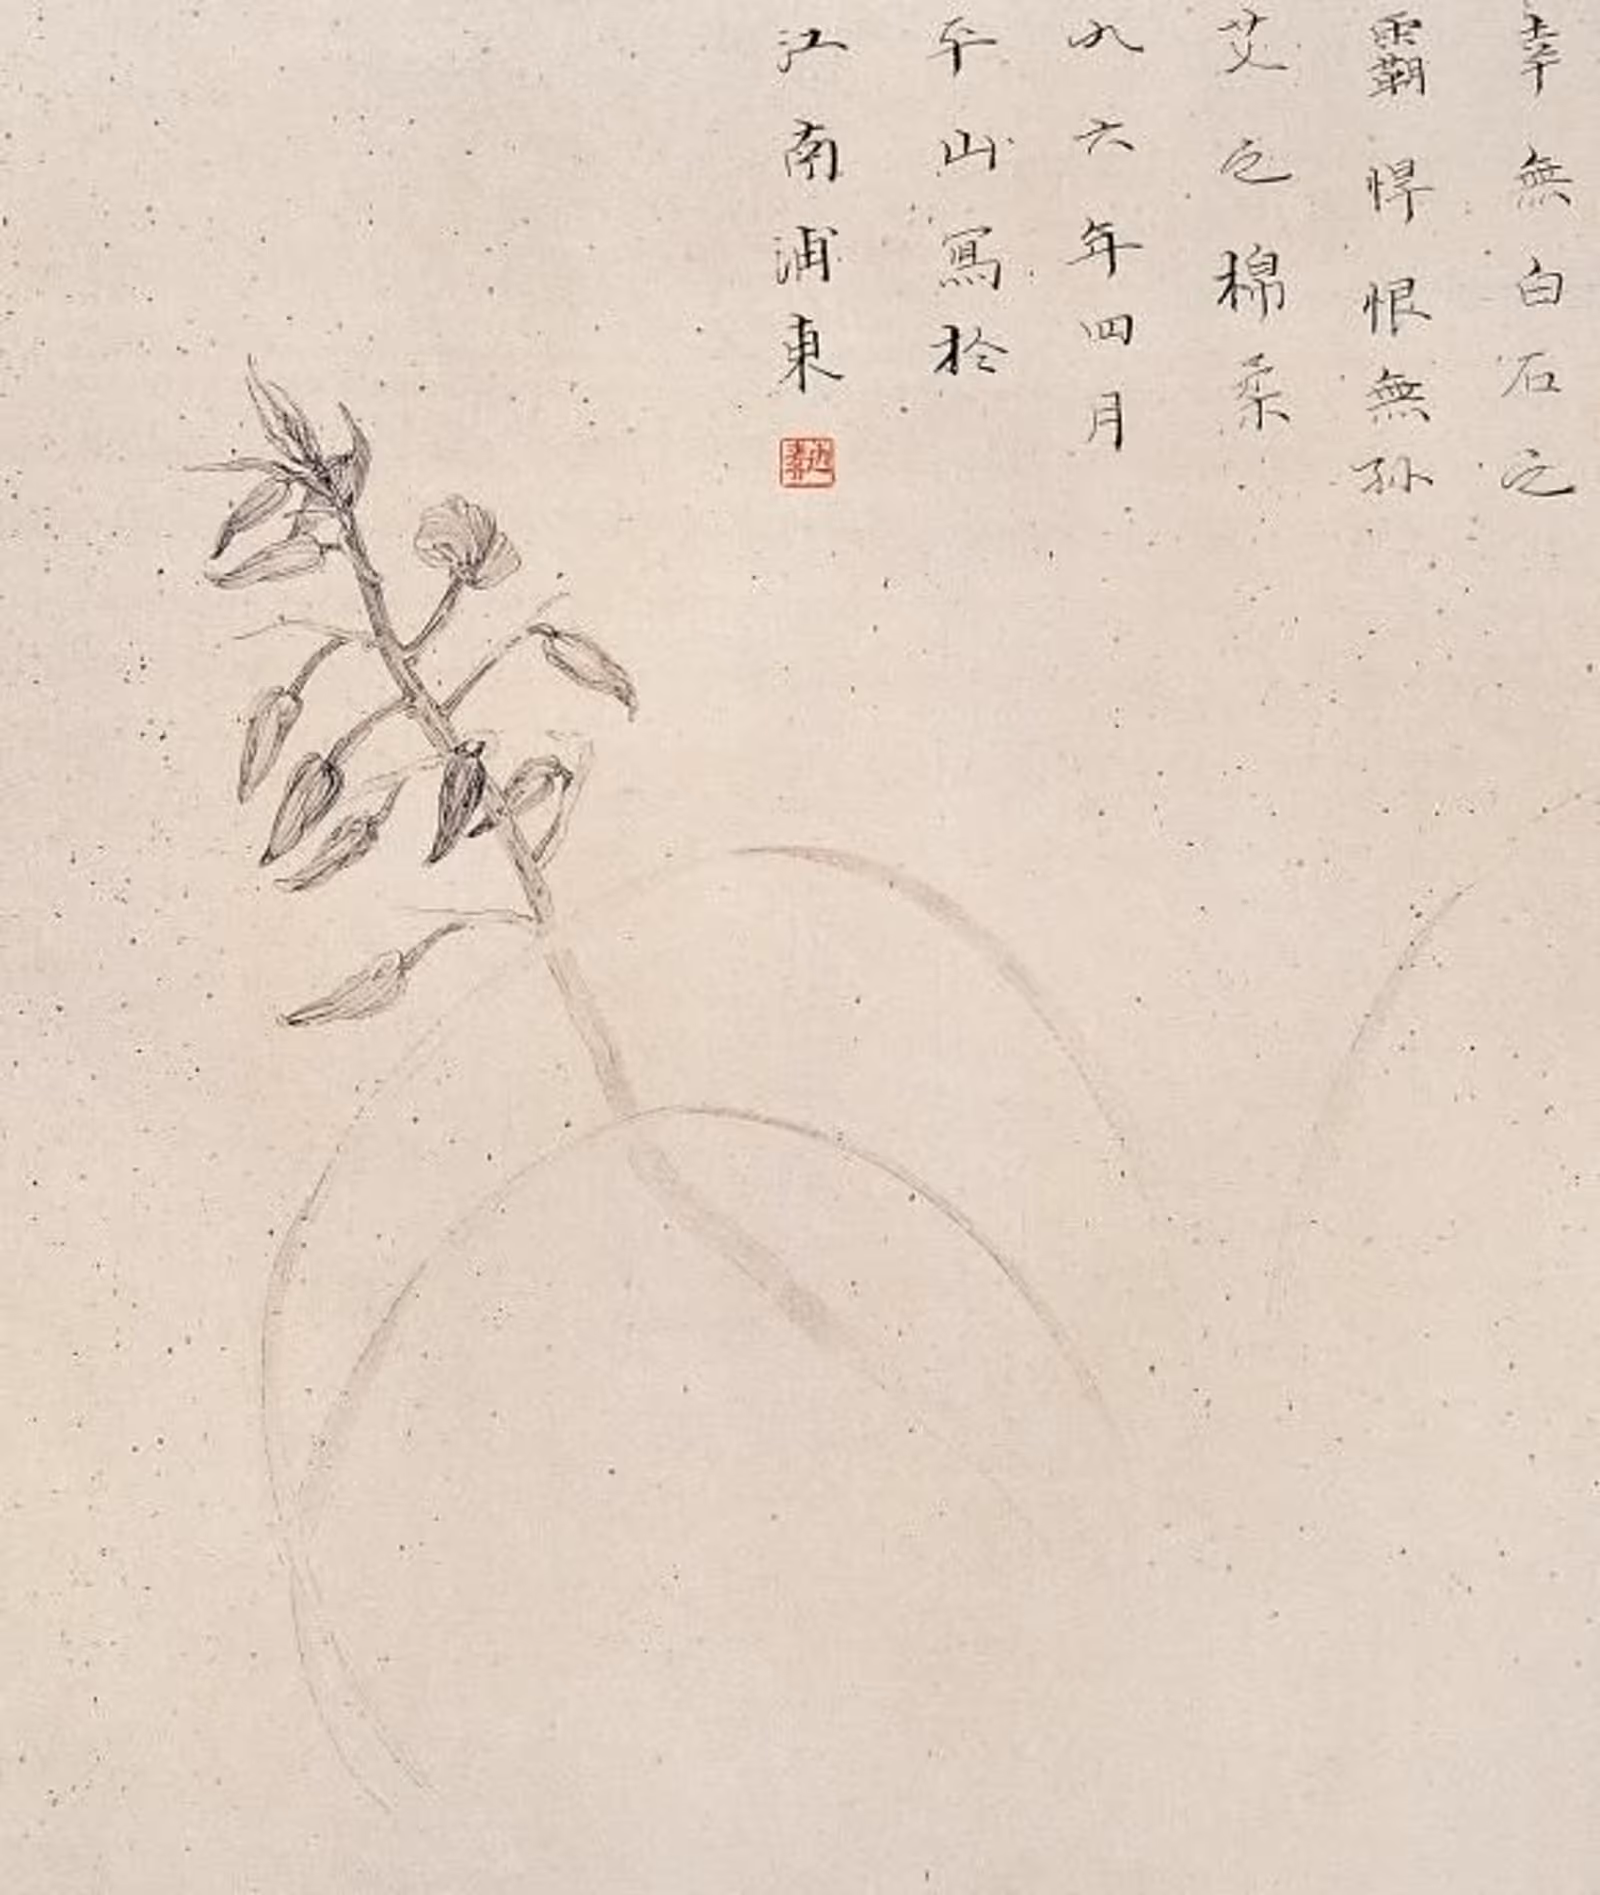 幸無白石之
霸悍恨無孙
艾之棉柔
九六年四月
平山寫於
江南浦東